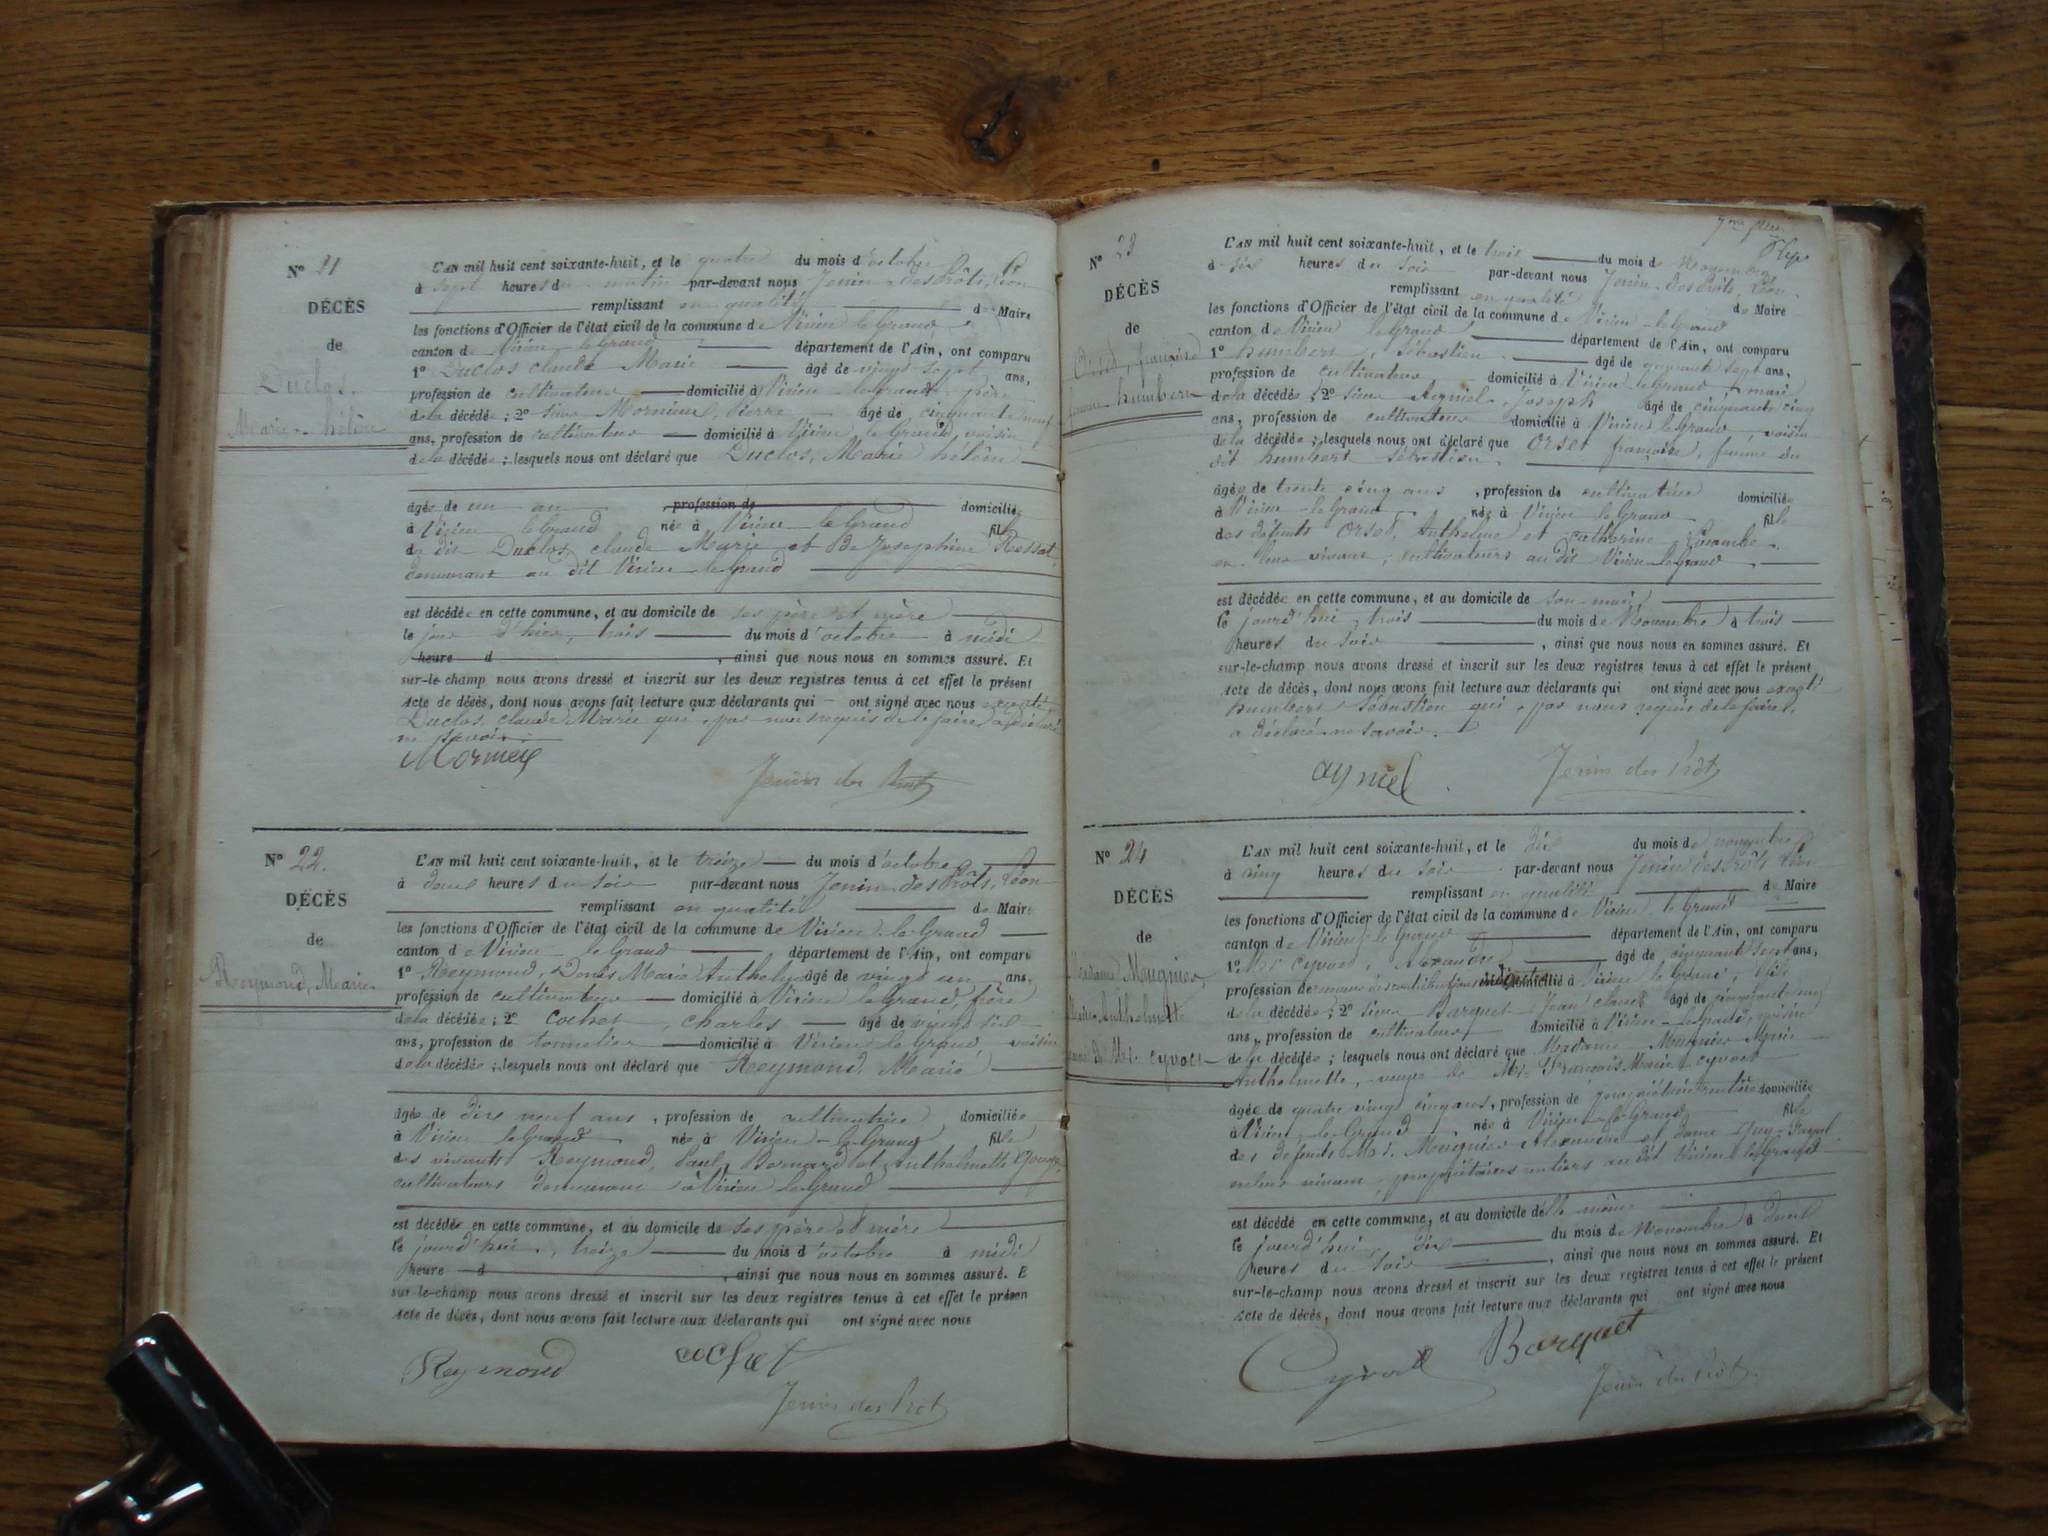 N° 21
DÉCÈS
de
Duclos,
Marie-hélène
L'AN mil huit cent soixante-huit, et le quatre du mois d'octobre
à sept heures du matin par-devant nous Jenin-Desprôts, Léon
remplissant en qualité de Maire
les fonctions d'Officier de l'état civil de la commune de Virieu le Grand
canton de Virieu le Grand département de l'Ain, ont comparu
1° Duclos claude Marie âgé de vingt sept ans,
profession de cultivateur domicilié à Virieu le Grand, père
de la décédée; 2° sieur Mornieux, Pierre âgé de cinquante neuf
ans, profession de cultivateur domicilié à Virieu le Grand voisin
de la décédée; lesquels nous ont déclaré que Duclos, Marie hélène
âgée de un an profession de domiciliée
à Virieu le Grand née à Virieu le Grand fille
du dit Duclos, claude Marie et de Josephine Rossat,
demeurant au dit Virieu le grand
est décédée en cette commune, et au domicile de ses père et mère
le jour d'hier, trois du mois d'octobre à midi
heure d , ainsi que nous nous en sommes assuré. Et
sur-le-champ nous avons dressé et inscrit sur les deux registres tenus à cet effet le présent
Acte de décès, dont nous avons fait lecture aux déclarants qui ont signé avec nous excepté
Duclos, claude Marie qui, par nous requis de le faire, a déclaré
ne savoir.
Mornieux
Jenin des Prôts
N° 22.
DÉCÈS
de
Reymond, Marie
L'AN mil huit cent soixante-huit, et le treize du mois d'octobre
à deux heures du soir par-devant nous Jenin-desPrôts, Léon
remplissant en qualité de Maire
les fonctions d'Officier de l'état civil de la commune de Virieu le Grand
canton de Virieu le Grand département de l'Ain, ont comparu
1° Reymond, Denis Marie Anthelme âgé de vingt un ans,
profession de cultivateur domicilié à Virieu le Grand, frère
de la décédée; 2° Cochet, charles âgé de vingt six
ans, profession de tonnelier domicilié à Virieu le Grand voisin
de la décédée; lesquels nous ont déclaré que Reymond, Marie
âgée de dix neuf ans, profession de cultivatrice domiciliée
à Virieu le Grand née à Virieu le Grand fille
des vivants Reymond, Paul, Bernard et Anthelmette
cultivateurs demeurant à Virieu le Grand
est décédée en cette commune, et au domicile de ses père et mère
le jourd'hui, treize du mois d'octobre à midi
heure d , ainsi que nous nous en sommes assuré. E
sur-le-champ nous avons dressé et inscrit sur les deux registres tenus à cet effet le présen
Acte de décès, dont nous avons fait lecture aux déclarants qui ont signé avec nous
Reymond cochet
Jenin des Prôts
N° 23
DÉCÈS
de
Orset, françoise
femme humbert
7me
L'AN mil huit cent soixante-huit, et le trois du mois de Novembre
à six heures du soir par-devant nous Jenin-Desprôts, Léon
remplissant en qualité de Maire
les fonctions d'Officier de l'état civil de la commune de Virieu le Grand
canton de Virieu le Grand département de l'Ain, ont comparu
1° humbert, Sébastien âgé de quarante sept ans,
profession de cultivateur domicilié à Virieu le Grand, mari
de la décédée; 2° sieur Ayniel, Joseph âgé de cinquante cinq
ans, profession de cultivateur domicilié à Virieu le Grand, voisin
de la décédée; lesquels nous ont déclaré que Orset françoise, femme du
dit humbert Sébastien
âgée de trente cinq ans, profession de cultivatrice domiciliée
à Virieu le Grand née à Virieu le Grand fille
des défunts Orset, Anthelme et catherine
en leur vivant, cultivateurs au dit Virieu le Grand
est décédée en cette commune, et au domicile de son mari
le jourd'hui, trois du mois de Novembre à trois
heures du soir , ainsi que nous nous en sommes assuré. Et
sur-le-champ nous avons dressé et inscrit sur les deux registres tenus à cet effet le présent
Acte de décès, dont nous avons fait lecture aux déclarants qui ont signé avec nous excepté
humbert Sébastien qui, par nous requis de le faire,
a déclaré ne savoir.
ayniel Jenin des Prôts
N° 24
DÉCÈS
de
Madame Mougnier,
Marie Anthelmette
veuve de Mr. Cyvoct
L'AN mil huit cent soixante-huit, et le dix du mois de novembre
à cinq heures du soir par-devant nous Jenin desprôts Léon
remplissant en qualité de Maire
les fonctions d'Officier de l'état civil de la commune de Virieu le Grand
canton de Virieu le Grand département de l'Ain, ont comparu
1° Mr. Cyvoct, Alexandre âgé de cinquante sept ans,
profession de contributions domicilié à Virieu le Grand, fils
de la décédée; 2° sieur Barquet Jean claude âgé de cinquante
ans, profession de cultivateur domicilié à Virieu le Grand, voisin
de la décédée; lesquels nous ont déclaré que Madame Mougnier Marie
Anthelmette, veuve de Mr. François Marie Cyvoct
âgée de quatre vingt cinq ans, profession de propriétaire rentière domiciliée
à Virieu le Grand née à Virieu le Grand fille
des défunts Mr. Mougnier Alexandre et dame
en leur vivant, propriétaires rentiers au dit Virieu le Grand
est décédé en cette commune, et au domicile d'elle même
le jourd'hui, dix du mois de Novembre à deux
heures du soir , ainsi que nous nous en sommes assuré. Et
sur-le-champ nous avons dressé et inscrit sur les deux registres tenus à cet effet le présent
Acte de décès, dont nous avons fait lecture aux déclarants qui ont signé avec nous
Cyvoct Barquet
Jenin des Prôts